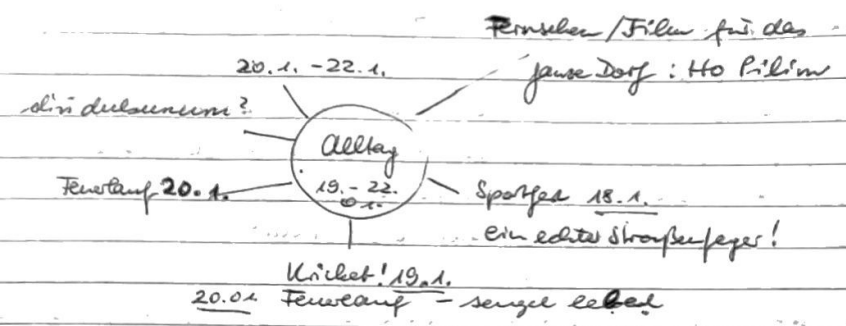 Fernsehen/Film für das
ganze Dorf: Ho Pilim
20.1. - 22.1.
Alltag
19. - 22.
01.
Feuertanz 20.1.
Sportfest 18.1.
ein echter Straßenfeger!
Kricket! 19.1.
20.01 Feuertanz -